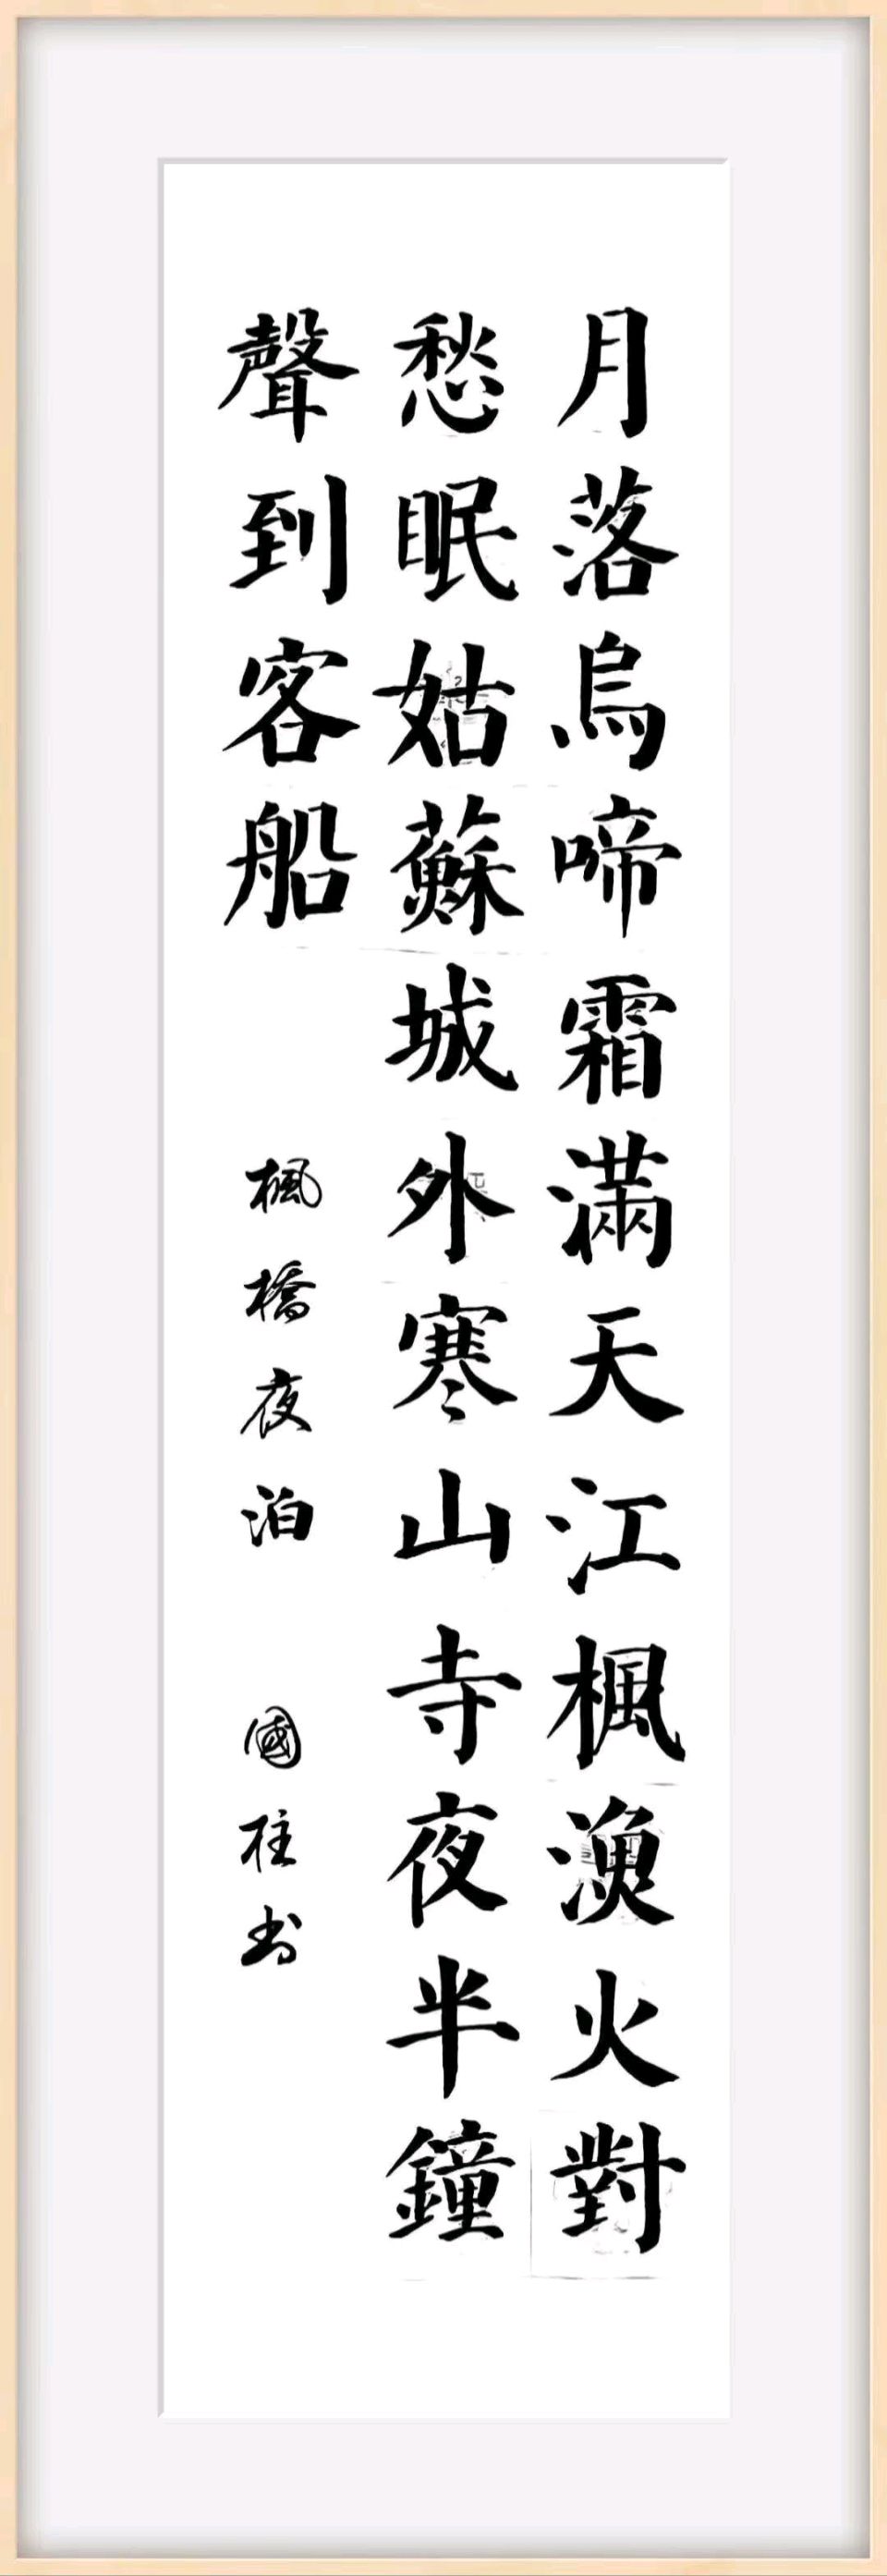 月落烏啼霜滿天江楓漁火對
愁眠姑蘇城外寒山寺夜半鐘
聲到客船
楓橋夜泊 國柱书